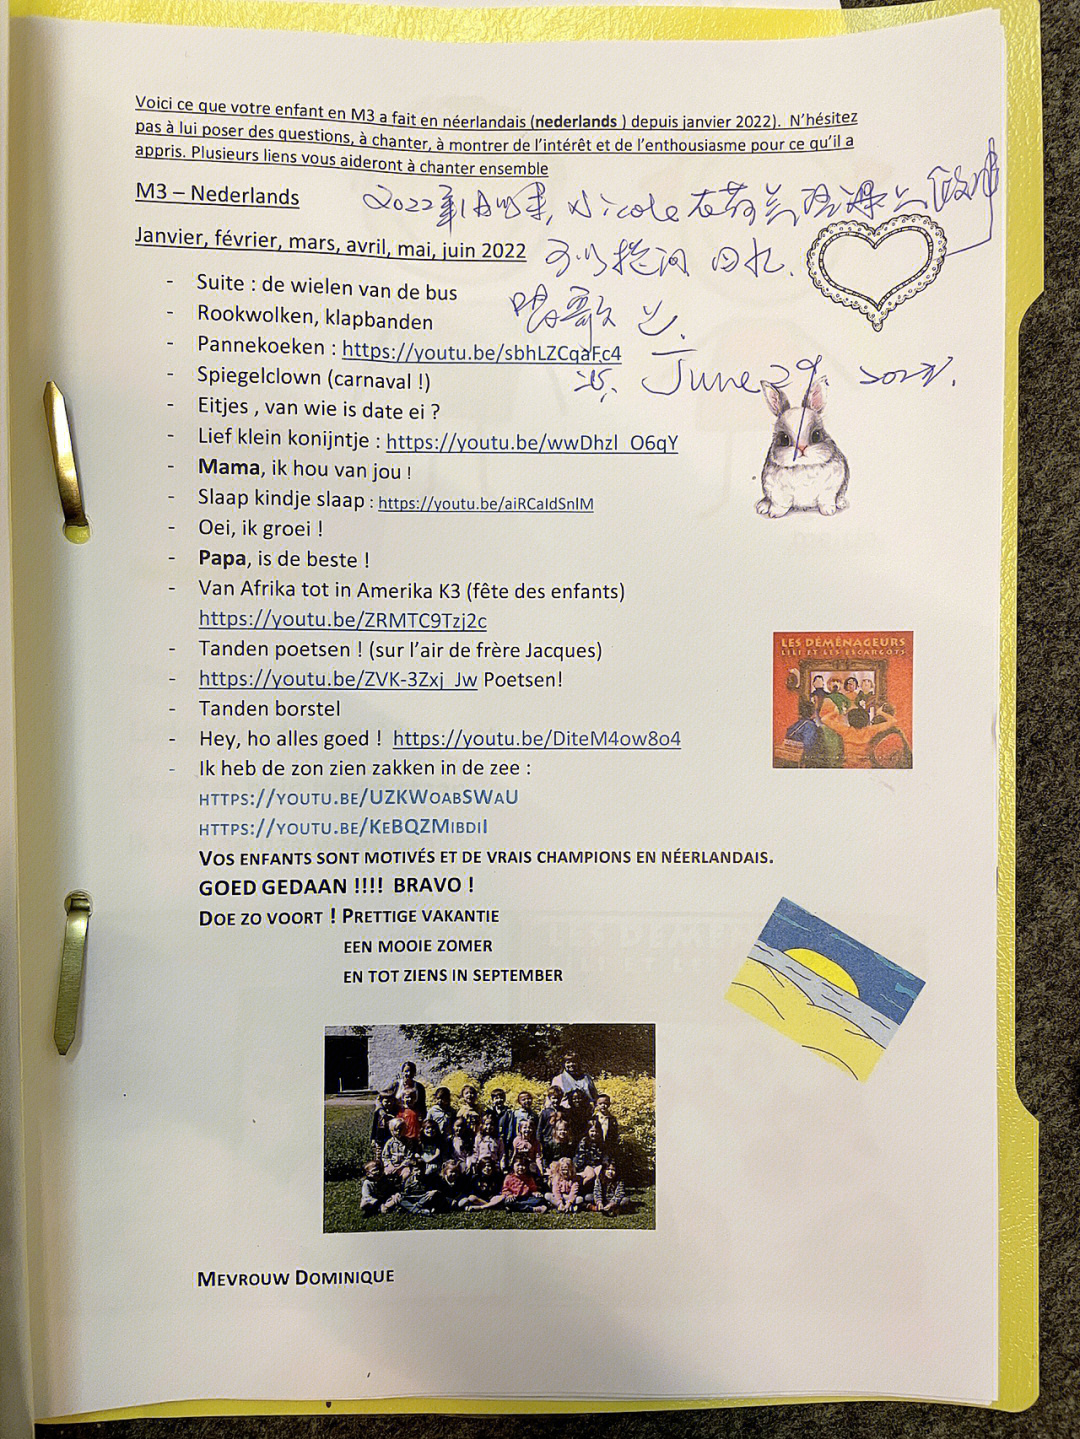 Voici ce que votre enfant en M3 a fait en néerlandais (nederlands ) depuis janvier 2022). N'hésitez
pas à lui poser des questions, à chanter, à montrer de l'intérêt et de l'enthousiasme pour ce qu'il a
appris. Plusieurs liens vous aideront à chanter ensemble
M3 – Nederlands
2022年1月以来, Nicole 在荷兰语课上做的
Janvier, février, mars, avril, mai, juin 2022
可以提问
- Suite : de wielen van de bus
- Rookwolken, klapbanden
唱歌
- Pannekoeken : https://youtu.be/sbhLZCqaFc4
June 29, 2022.
- Spiegelclown (carnaval !)
- Eitjes , van wie is date ei ?
- Lief klein konijntje : https://youtu.be/wwDhzl_O6qY
- Mama, ik hou van jou !
- Slaap kindje slaap : https://youtu.be/aiRCaldSnlM
- Oei, ik groei !
- Papa, is de beste !
- Van Afrika tot in Amerika K3 (fête des enfants)
https://youtu.be/ZRMTC9Tzj2c
- Tanden poetsen ! (sur l'air de frère Jacques)
- https://youtu.be/ZVK-3Zxj_Jw Poetsen!
- Tanden borstel
- Hey, ho alles goed ! https://youtu.be/DiteM4ow8o4
- Ik heb de zon zien zakken in de zee :
HTTPS://YOUTU.BE/UZKWOABSWAU
HTTPS://YOUTU.BE/KEBQZMIBDII
VOS ENFANTS SONT MOTIVÉS ET DE VRAIS CHAMPIONS EN NÉERLANDAIS.
GOED GEDAAN !!!! BRAVO !
DOE ZO VOORT ! PRETTIGE VAKANTIE
EEN MOOIE ZOMER
EN TOT ZIENS IN SEPTEMBER
LES DÉMÉNAGEURS
LILI ET LES ESCARGOTS
MEVROUW DOMINIQUE